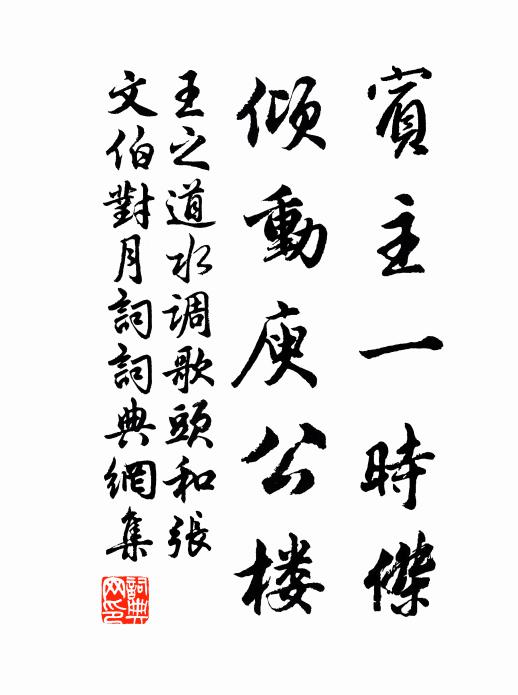 賓主一時傑
傾動庾公楼
王之道水调歌頭和張
文伯對月詞詞典網集
詞典网印